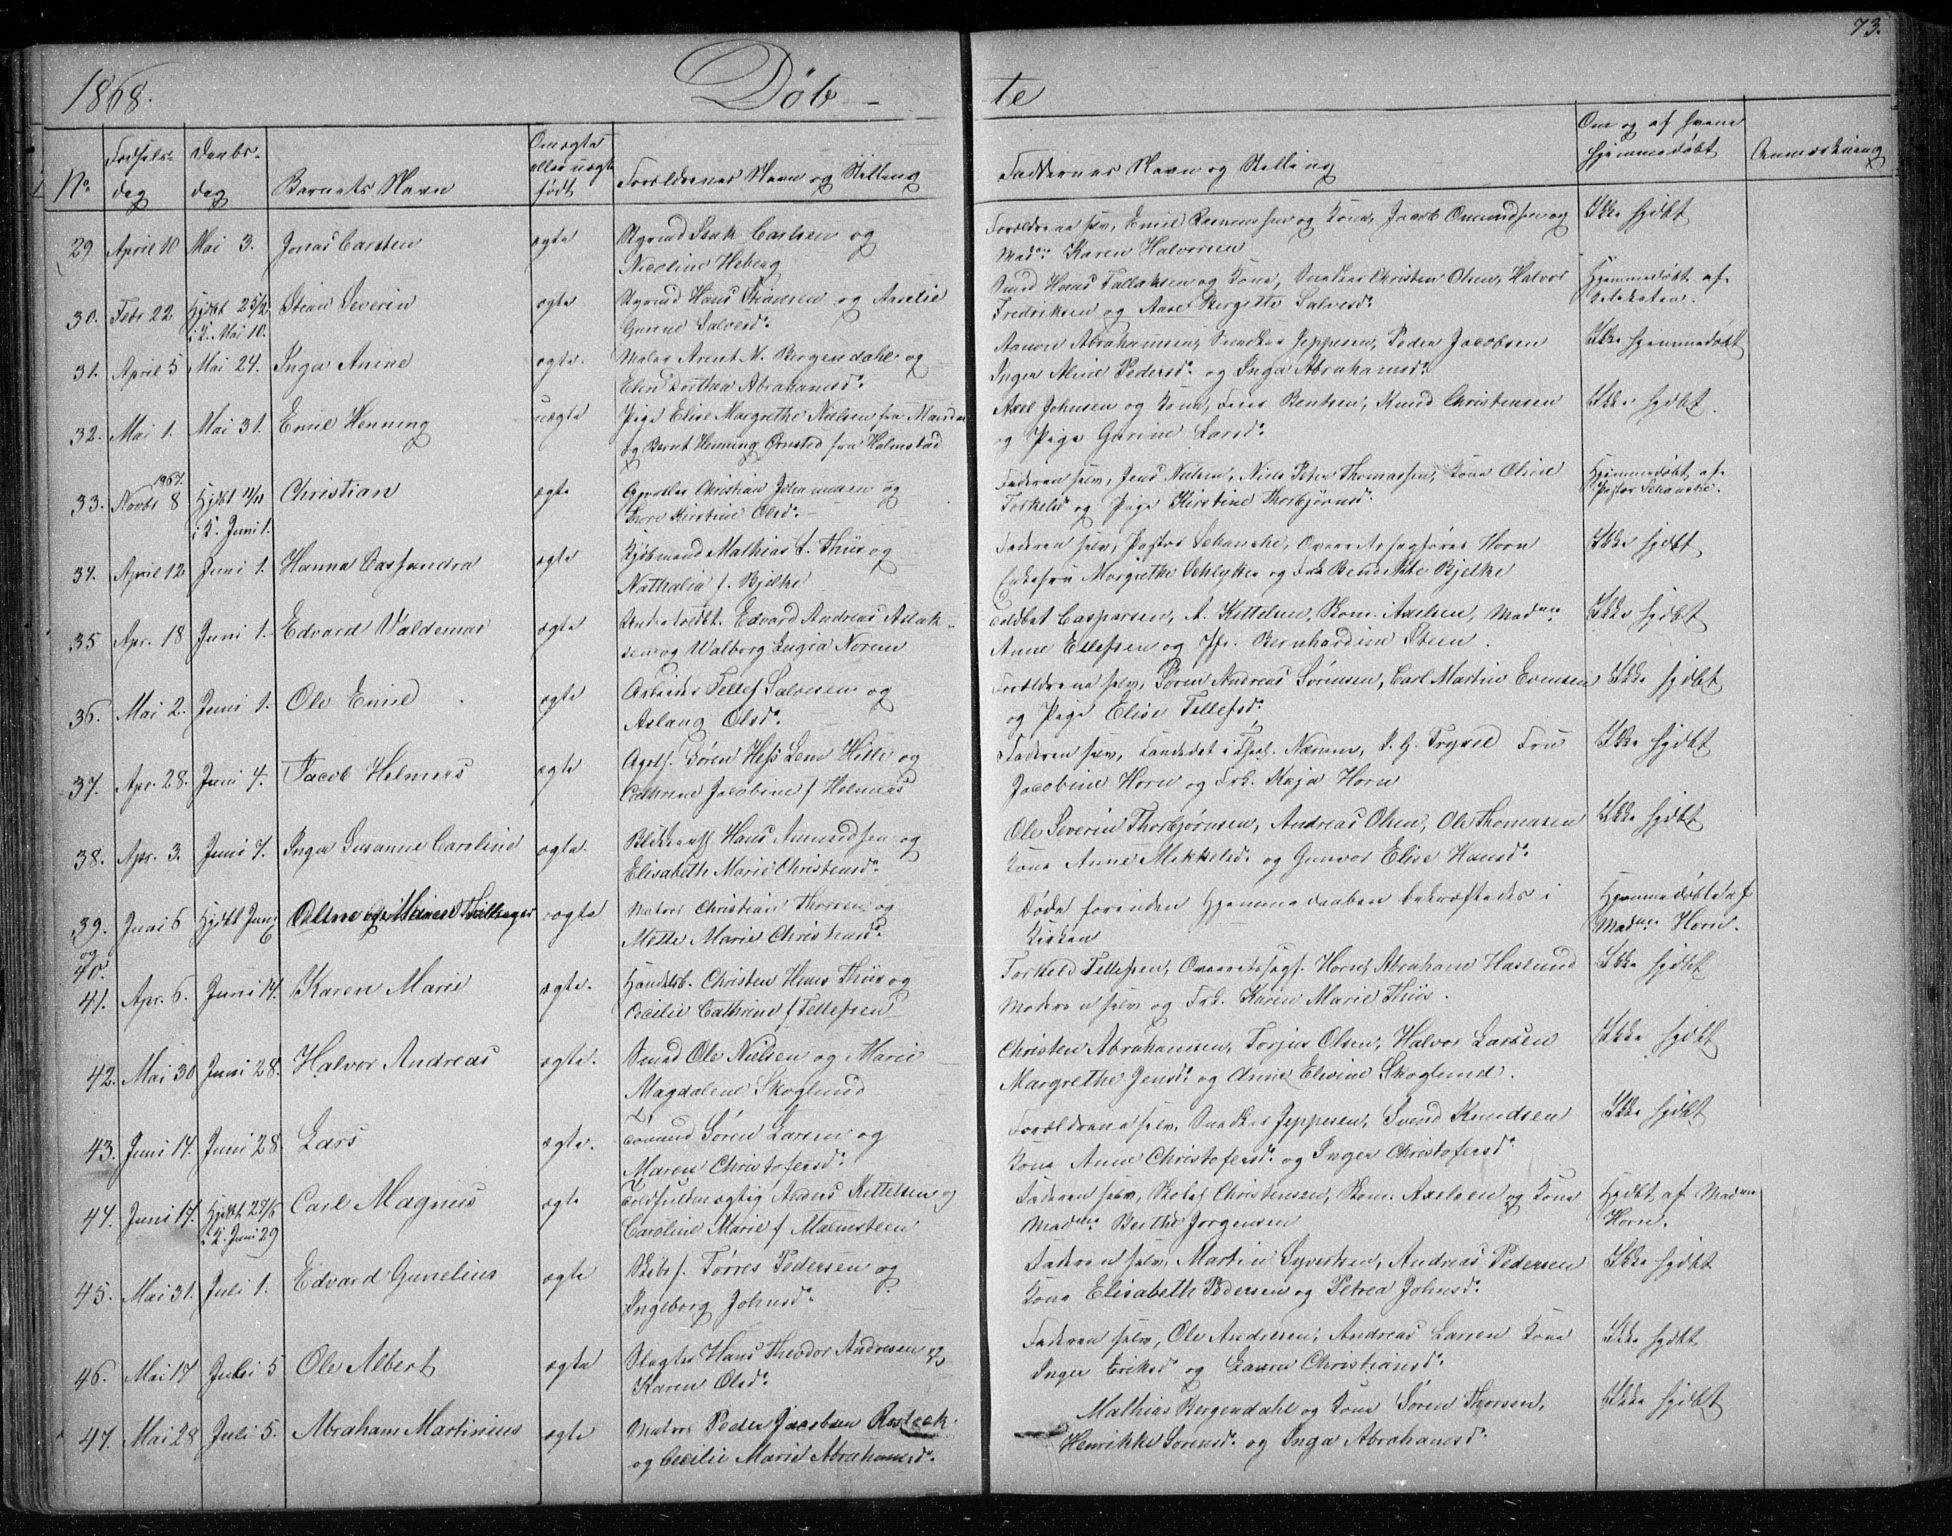 73.
1868. Døb- te
No. Fødsels- dag Daabs- dag Barnets Navn Om ægte eller uægte født Forældrenes Navn og Stilling Faddernes Navn og Stilling Om og af hvem hjemmedøbt Anmærkning
29 April 10 Mai 3. Jonas Carsten ægte Styrmd Isak Carlsen og Forældrene selv, Emil Rasmussen og Kone, Jacob Omundsen og Ikke hjdøbt
Nicoline Heberg Madm: Karen Halvorsen
30. Febr 22 Hjdbt 25/2 Stian Severin ægte Styrmd Hans Stiansen og Amelie Smed Hans Tallaksen og Kone, Snedker Christen Olsen, Halvor Hjemmedøbt af
i K. Mai 10. Gurine Salvesd: Fredriksen og Aase Bergitte Salvesd:
31. April 5 Mai 24. Inga Anine ægte. Maler Arent N. Bergendahl og Aanon Abrahamsen, Snedker Jeppesen, Peder Jacobsen Ikke hjemmedøbt
Elen Dorthea Abrahamsd: Inger Aline Pedersd: og Inga Abrahamsd:
32. Mai 1. Mai 31. Emil Henning uægte Pige Elise Margrethe Nielsen fra Mandal Axel Johnsen og Kone, Bentsen, Knud Christensen Ikke hjdbt.
og Bernt Henning Ørnsted fra Halmstad og Pige Gurine Larsd:
33. 1867. Novbr 8 Hjdbt 11/11 Christian ægte Christian Johannesen og Faderen selv, Jens Nielsen, Niels Peter Thomassen, Kone Oline Hjemmedøbt af
i K. Juni 1. Kirstine Olsd: Torkelsd og Pige Kirstine Thorbjørnsd: Pastor Schanche.
34. April 12 Juni 1. Hanna Cassandra ægte Kjøbmand Mathias S. Thiis og Faderen selv, Pastor Schanche, Overretssagfører Horn Ikke hjdbt
Nathalia f. Bjelke Enkefru Margrethe Schlytter og Frk Benedikte Bjelke
35 Apr. 18 Juni 1. Edvard Valdemar ægte Undertoldbt. Edvard Andreas Aslak- Toldbet Caspersen, A. Kittelsen, Skom. Axelsen, Madm: Ikke hjdbt
sen og Walborg Ingia Norem Anne Ellefsen og Jfr. Bernhardine Steen.
36. Mai 2. Juni 1. Ole Emil ægte Arbeider Tellef Salvesen og Forældrene selv, Søren Andreas Sørensen, Carl Martin Evensen Ikke hjdbt
Aslaug Olsd: og Pige Elise Tellefsd:
37. Apr. 28. Juni 4. Jacob Helmers ægte Apoth. Søren Hess Lem Hille og Faderen selv, Kandidat i Theol. Næsem, P. G. Trysil Fru Ikke hjdbt
Cathrine Jacobine f Helmers Jacobine Horn og Frk. Kaja Horn
38. Apr. 3. Juni 7. Inga Susanne Caroline ægte. Hans Amundsen og Ole Severin Thorbjørnsen, Andreas Olsen, Ole Thomasen Ikke hjdbt
Elisabeth Marie Christensd: Kone Anne Mikkelsd: og Gunvor Elise Hansd:
39. Juni 6 Hjdbt Juni 6 Oline og Maren Tvillinger ægte Matros Christian Thorsen og Døde forinden Hjemmedaaben bekræftedes i Hjemmedøbte af
og 40. Mette Marie Christensd: Kirken Madm: Horn.
41. Apr. 6. Juni 14. Karen Marie ægte. Handelsb. Christen Hans Thiis og Torkeld Tellefsen, Overretssagf. Horn, Abraham Haslund Ikke hjdbt
Cecilie Cathrine f Tellefsen Moderen selv og Frk. Karen Marie Thiis.
42. Mai 30 Juni 28. Halvor Andreas ægte. Smed Ole Nielsen og Marie Christen Abrahamsen, Torjus Olsen, Halvor Larsen Ikke hjdbt
Magdalene Skoglund Margrethe Jensd: og Anne Elevine Skoglund.
43. Juni 14. Juni 28. Lars ægte. Tømmd Søren Larsen og Forældrene selv, Snedker Jeppesen, Svend Knudsen Ikke hjdbt
Maren Christofersd: Kone Anne Christofersd: og Inger Christofersd:
44. Juni 17. Hjdbt 29/6 Carl Magnus ægte Toldfuldmægtig Anders Kittelsen og Faderen selv, Christensen, Skom. Axelsen og Kone Hjdbt af Madm
i K. Juni 29 Caroline Marie f Malmsteen Madm: Berthe Jørgensen Horn.
45. Mai 31. Juli 1. Edvard Gunelius ægte Skibsf. Tørres Pedersen og Faderen selv, Martin Syvertsen, Andreas Pedersen Ikke hjdbt
Ingeborg Johnsd: Kone Elisabeth Pedersen og Petrea Johnsd:
46. Mai 17 Juli 5 Ole Albert ægte Slagter Hans Theodor Andresen og Faderen selv, Ole Andresen, Andreas Larsen Kone Ikke hjdbt
Karen Olsd: Inger Eriksd og Laura Christiansd:
47. Mai 28 Juli 5. Abraham Martinius ægte Matros Peder Jacobsen Mathias Bergendahl og Kone Søren Thorsen, Ikke hjdbt
og Cecilie Marie Abrahamsd: Henrikke Sørensd: og Inga Abrahamsd: